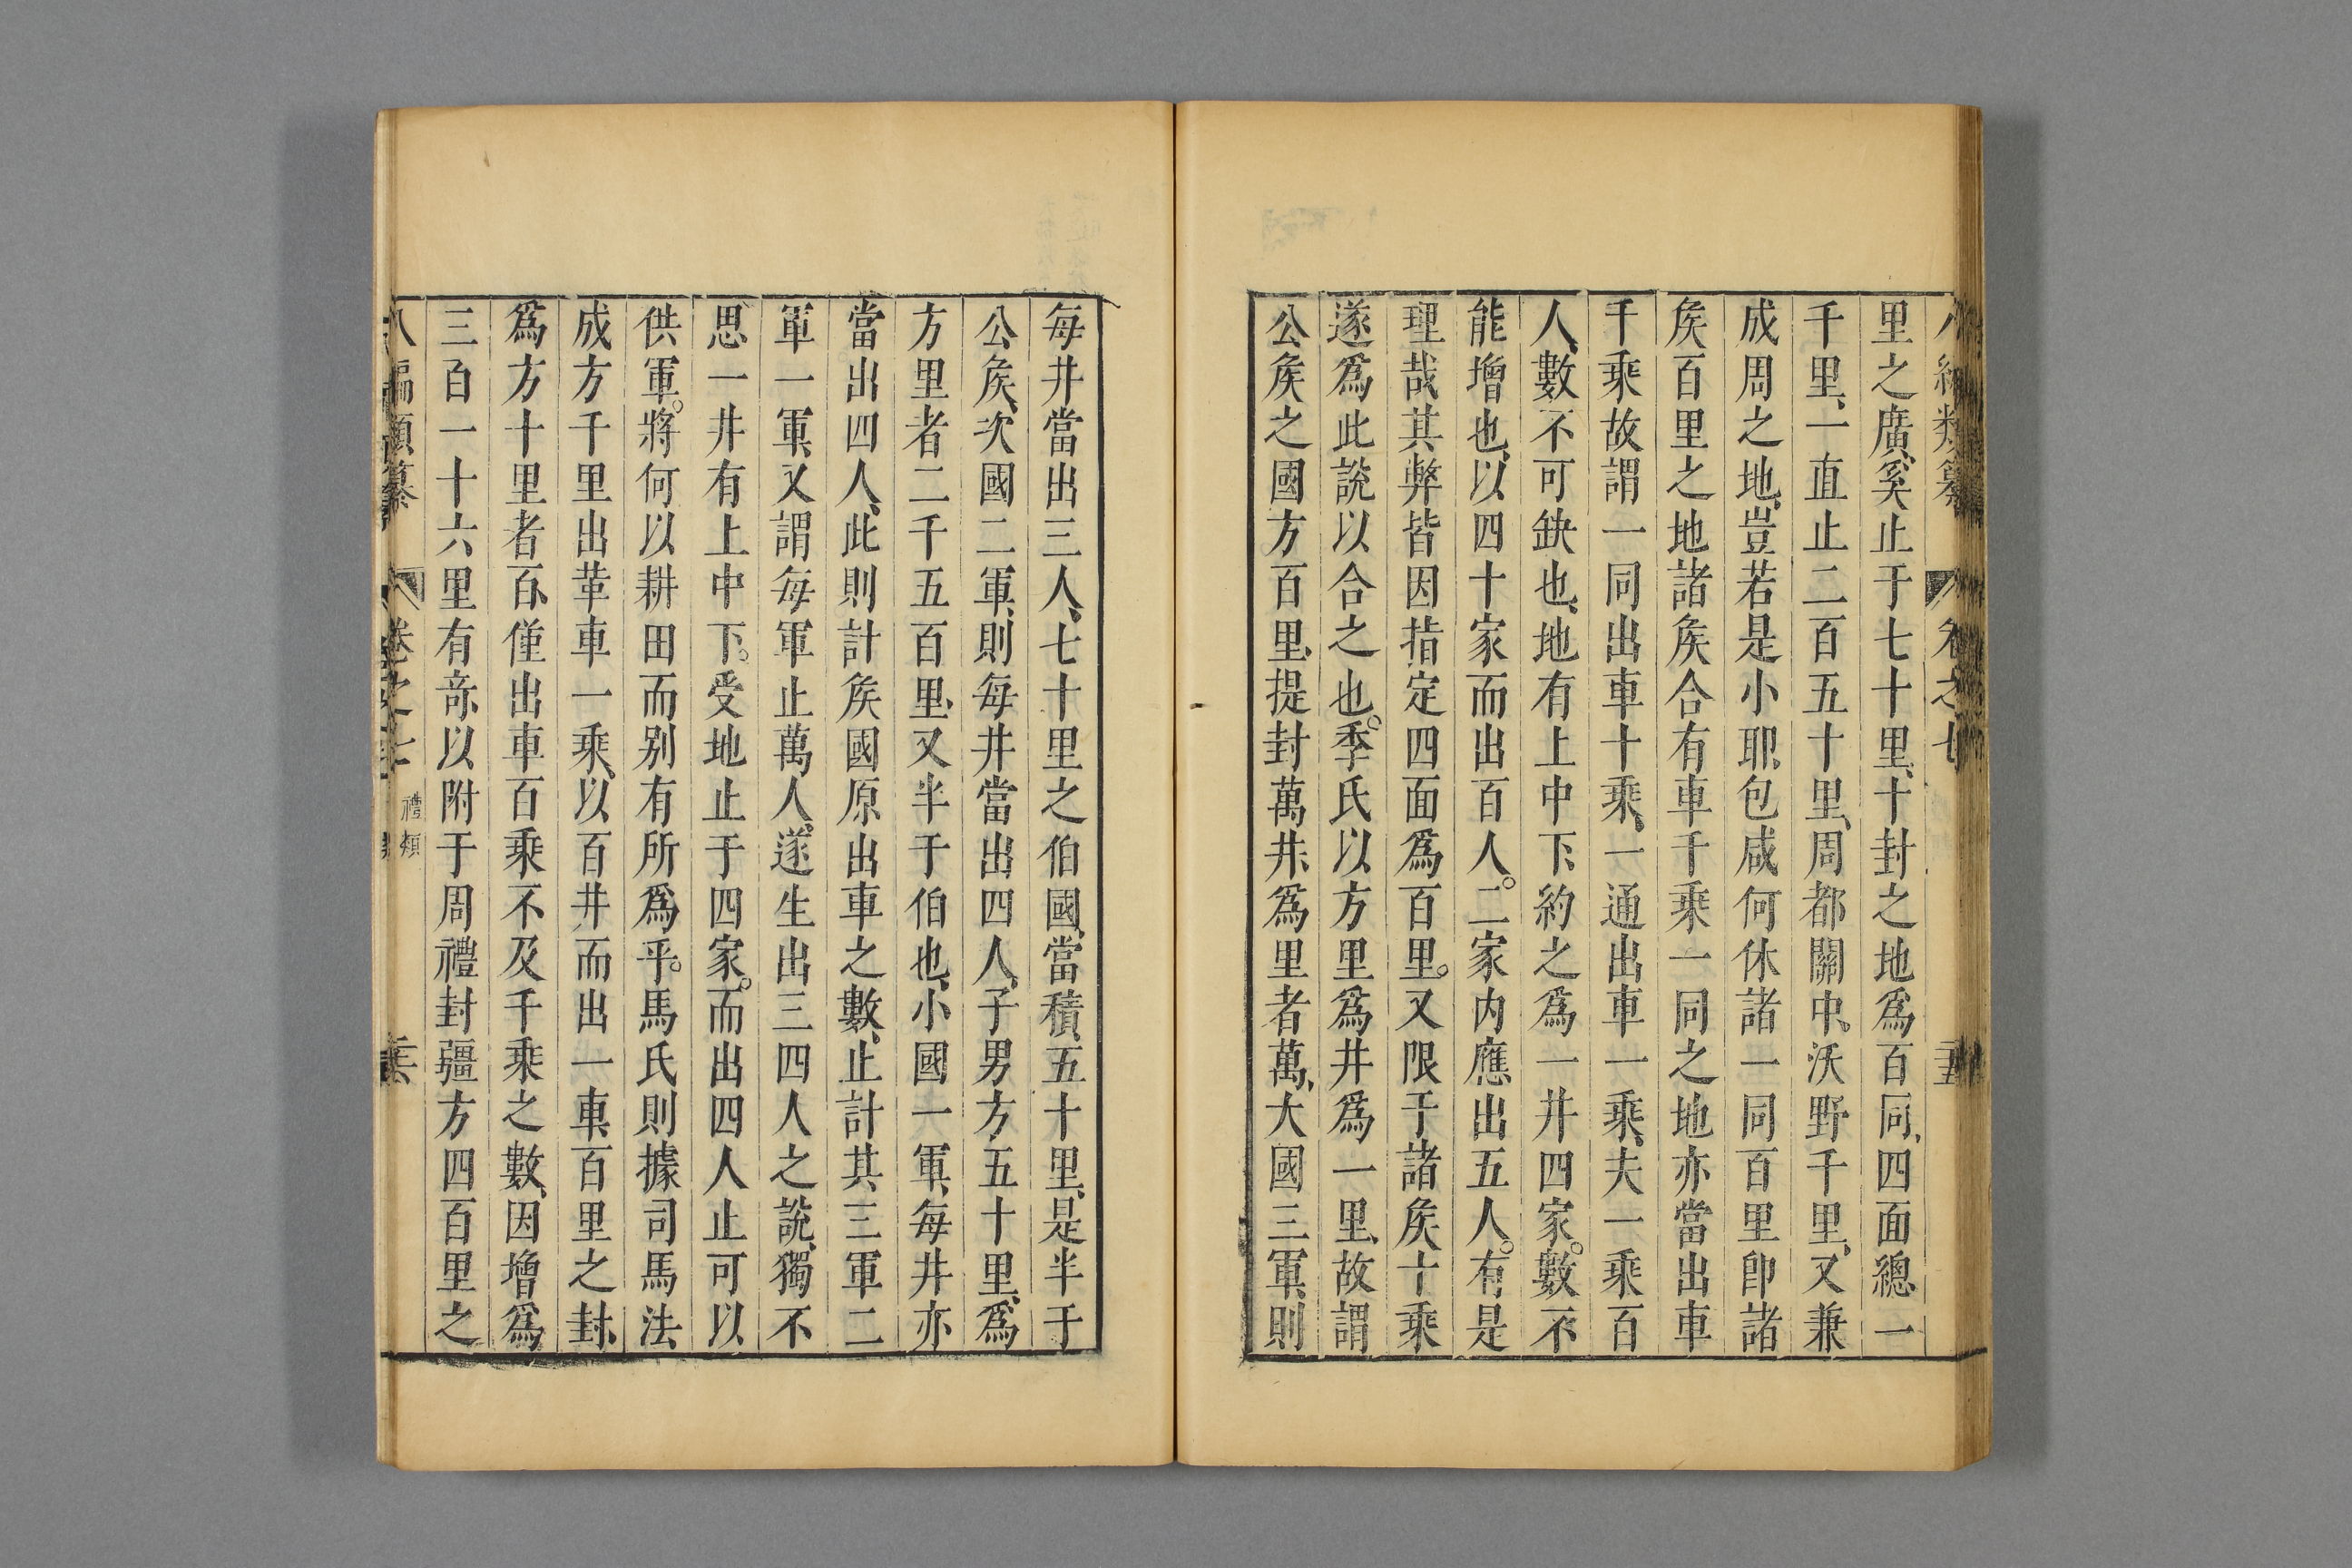 里之廣、奚止于七十里、十封之地爲百同、四面總一
千里、一直止二百五十里、周都關中、沃野千里、又兼
成周之地、豈若是小耶、包咸何休諸一同百里卽諸
矦百里之地諸矦合有車千乘一同之地亦當出車
千乘故謂一同出車十乘、一通出車一乘、夫一乘百
人、數不可缺也、地有上中下、約之爲一井四家。數不
能增也、以四十家而出百人。二家内應出五人。有是
理哉其弊皆因指定四面爲百里。又限于諸矦十乘
遂爲此說以合之也。季氏以方里爲井爲一里、故謂
公矦之國方百里、提封萬井、爲里者萬、大國三軍、則
每井當出三人、七十里之伯國、當積、五十里、是半于
公矦、次國二軍、則每井當出四人、子男方五十里、爲
方里者二千五百里、又半于伯也、小國一軍、每井亦
當出四人、此則計矦國原出車之數、止計其三軍二
軍一軍、又謂每軍止萬人、遂生出三四人之說、獨不
思一井有上中下。受地止于四家。而出四人止可以
供軍。將何以耕田而别有所爲乎。馬氏則據司馬法
成方千里出革車一乘、以百井而出一車、百里之封、
爲方十里者百、僅出車百乘不及千乘之數、因增爲
三百一十六里有奇、以附于周禮封疆方四百里之
八編類纂 卷之七 禮類